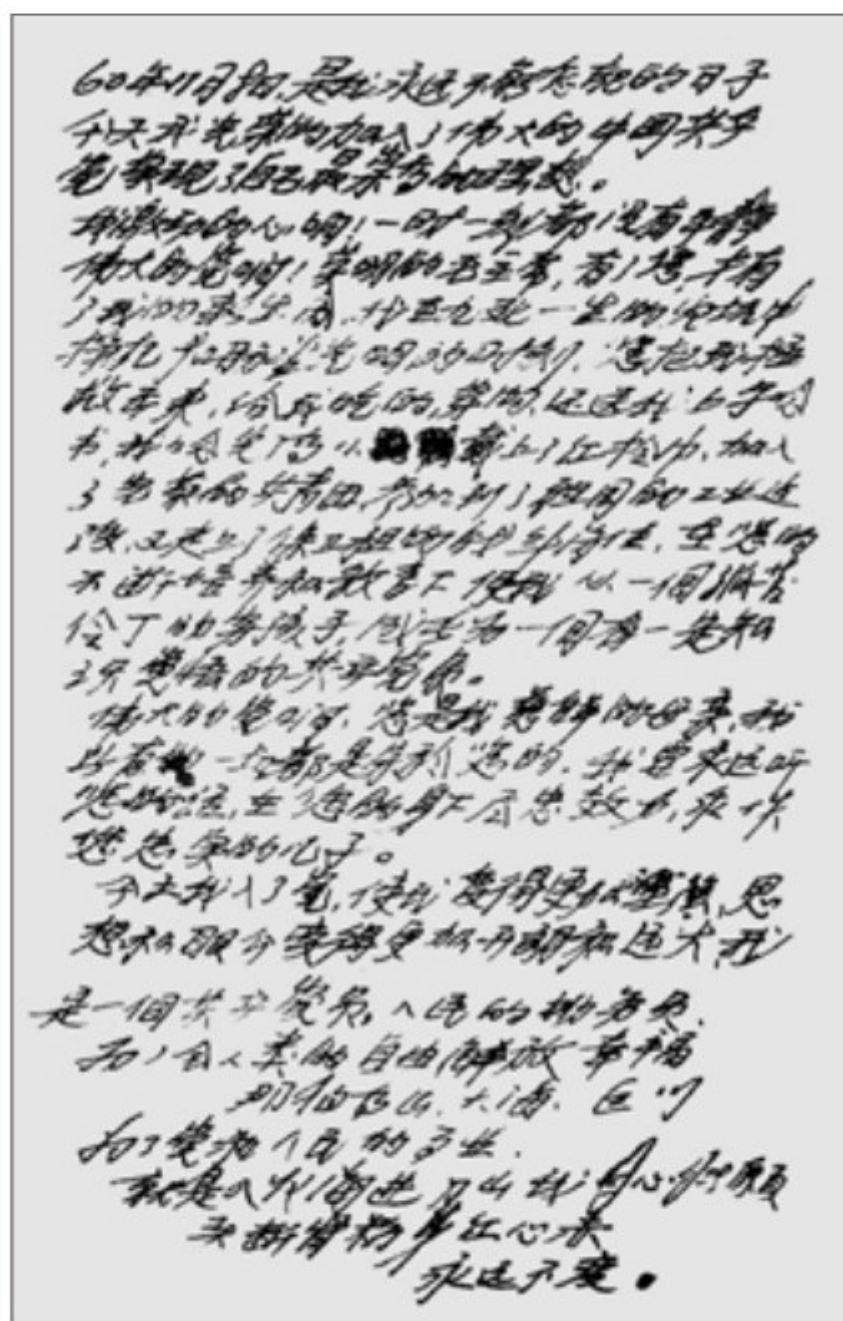 60年11月8日,是我永远不能忘记的日子
今天我光荣的加入了伟大的中国共产
党,实现了自己最崇高的理想。
我激动的心啊!一时一刻都没有平静
伟大的党啊!英明的毛主席,有了您,才有
了我的新生命,我在九死一生的火坑中
挣扎和盼望光明的时刻,您把我拯
救出来,给我吃的,穿的,还送我上学念
书,我念完了高小,戴上了红领巾,加入
了光荣的共青团,参加到了祖国的工业建
设,又走上了保卫祖国的战斗岗位,在您的
不断培养和教育下,使我从一个孤苦
伶丁的穷孩子,成长为一个有一定知
识觉悟的共产党员。
伟大的党啊,您是我慈祥的母亲,我
所有一切都是属于您的,我要永远听
您的话,在您的身下尽忠效力,永做
您忠实的儿子。
今天我入了党,使我变得更加坚强,思
想和眼界变得更加开朗和远大,我
是一個共产党员,人民的勤务员,
为了全人类的自由解放幸福
那怕高山、大海、巨川
为了党和人民的事业.
就是入火海进刀山,我甘心情愿
头断骨粉,身红心赤
永远不变。